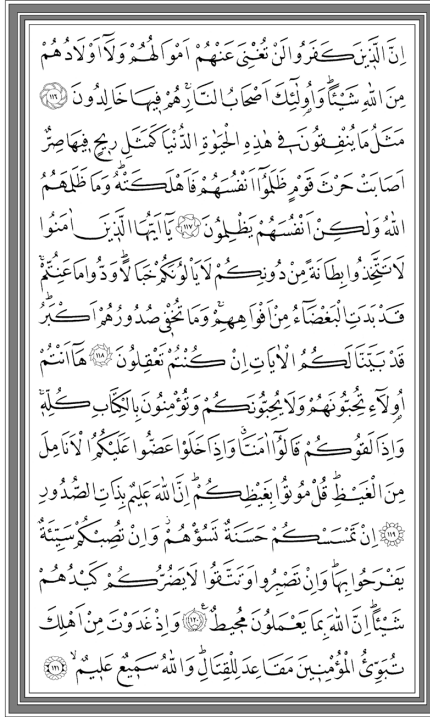 اِنَّ الَّذ۪ينَ كَفَرُوا لَنْ تُغْنِيَ عَنْهُمْ اَمْوَالُهُمْ وَلَٓا اَوْلَادُهُمْ
مِنَ اللّٰهِ شَيْـًٔاۜ وَاُو۬لٰٓئِكَ اَصْحَابُ النَّارِۚ هُمْ ف۪يهَا خَالِدُونَ ﴿١١٦﴾
مَثَلُ مَا يُنْفِقُونَ ف۪ي هٰذِهِ الْحَيٰوةِ الدُّنْيَا كَمَثَلِ ر۪يحٍ ف۪يهَا صِرٌّ
اَصَابَتْ حَرْثَ قَوْمٍ ظَلَمُٓوا اَنْفُسَهُمْ فَاَهْلَكَتْهُۜ وَمَا ظَلَمَهُمُ
اللّٰهُ وَلٰكِنْ اَنْفُسَهُمْ يَظْلِمُونَ ﴿١١٧﴾ يَٓا اَيُّهَا الَّذ۪ينَ اٰمَنُوا
لَا تَتَّخِذُوا بِطَانَةً مِنْ دُونِكُمْ لَا يَأْلُونَكُمْ خَبَالًاۜ وَدُّوا مَا عَنِتُّمْۚ
قَدْ بَدَتِ الْبَغْضَٓاءُ مِنْ اَفْوَاهِهِمْۚ وَمَا تُخْف۪ي صُدُورُهُمْ اَكْبَرُۜ
قَدْ بَيَّنَّا لَكُمُ الْاٰيَاتِ اِنْ كُنْتُمْ تَعْقِلُونَ ﴿١١٨﴾ هَٓا اَنْتُمْ
اُو۬لَٓاءِ تُحِبُّونَهُمْ وَلَا يُحِبُّونَكُمْ وَتُؤْمِنُونَ بِالْكِتَابِ كُلِّه۪ۚ
وَاِذَا لَقُوكُمْ قَالُٓوا اٰمَنَّاۗ وَاِذَا خَلَوْا عَضُّوا عَلَيْكُمُ الْاَنَامِلَ
مِنَ الْغَيْظِۜ قُلْ مُوتُوا بِغَيْظِكُمْۜ اِنَّ اللّٰهَ عَل۪يمٌ بِذَاتِ الصُّدُورِ
﴿١١٩﴾ اِنْ تَمْسَسْكُمْ حَسَنَةٌ تَسُؤْهُمْۘ وَاِنْ تُصِبْكُمْ سَيِّئَةٌ
يَفْرَحُوا بِهَاۜ وَاِنْ تَصْبِرُوا وَتَتَّقُوا لَا يَضُرُّكُمْ كَيْدُهُمْ
شَيْـًٔاۜ اِنَّ اللّٰهَ بِمَا يَعْمَلُونَ مُح۪يطٌ۟ ﴿١٢٠﴾ وَاِذْ غَدَوْتَ مِنْ اَهْلِكَ
تُبَوِّئُ الْمُؤْمِن۪ينَ مَقَاعِدَ لِلْقِتَالِۜ وَاللّٰهُ سَم۪يعٌ عَل۪يمٌۙ ﴿١٢١﴾